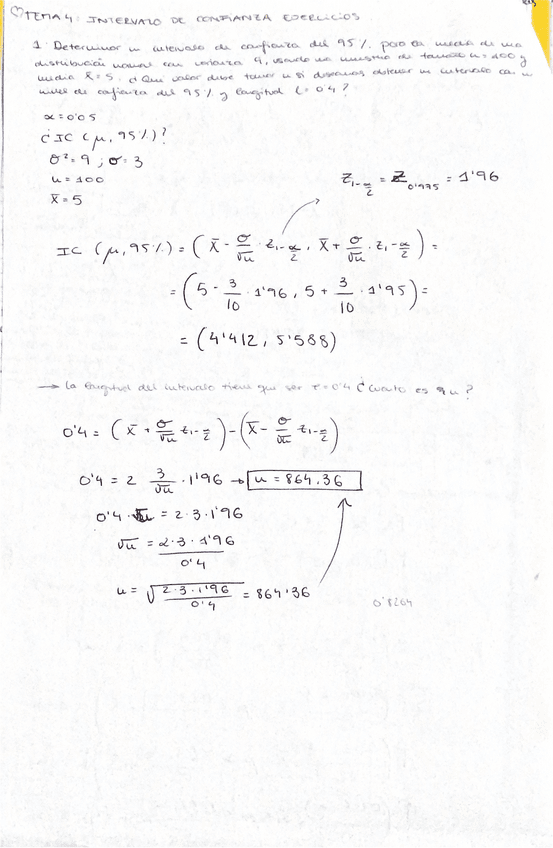 ♡TEMA 4: INTERVALO DE CONFIANZA EJERCICIOS
1. Determinar un intervalo de confianza del 95% para la media de una
distribución normal con varianza 9, usando una muestra de tamaño n=100 y
media x̄=5. ¿Qué valor debe tomar n si deseamos obtener un intervalo con un
nivel de confianza del 95% y longitud L=0'4?
α=0'05
¿IC (μ, 95%)?
σ²=9 ; σ=3
n=100
x̄=5
Z₁₋α/2 = Z₀'₉₇₅ = 1'96
IC (μ, 95%) = (x̄ - σ/√n · z₁₋α/2, x̄ + σ/√n · z₁₋α/2) =
= (5 - 3/10 · 1'96, 5 + 3/10 · 1'95) =
= (4'412, 5'588)
→ La longitud del intervalo tiene que ser = 0'4 ¿Cuánto es n?
0'4 = (x̄ + σ/√n z₁₋α/2) - (x̄ - σ/√n z₁₋α/2)
0'4 = 2 3/√n · 1'96 → n = 864'36
0'4 · √n = 2·3·1'96
√n = 2·3·1'96/0'4
n = √(2·3·1'96/0'4) = 864'36
0'8264